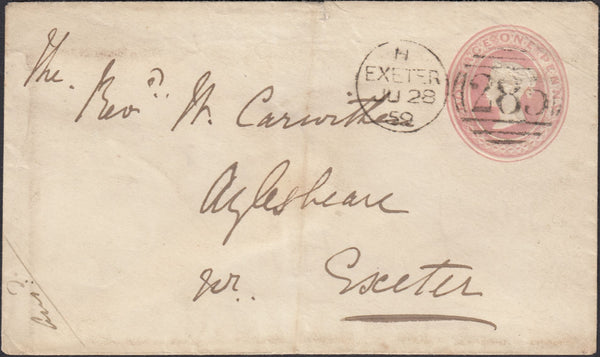 H
EXETER
JU 28
59
POSTAGE ONE PENNY
285
The.
Revd. W. Carwithen
Aylesbeare
nr. Exeter
Ansd.